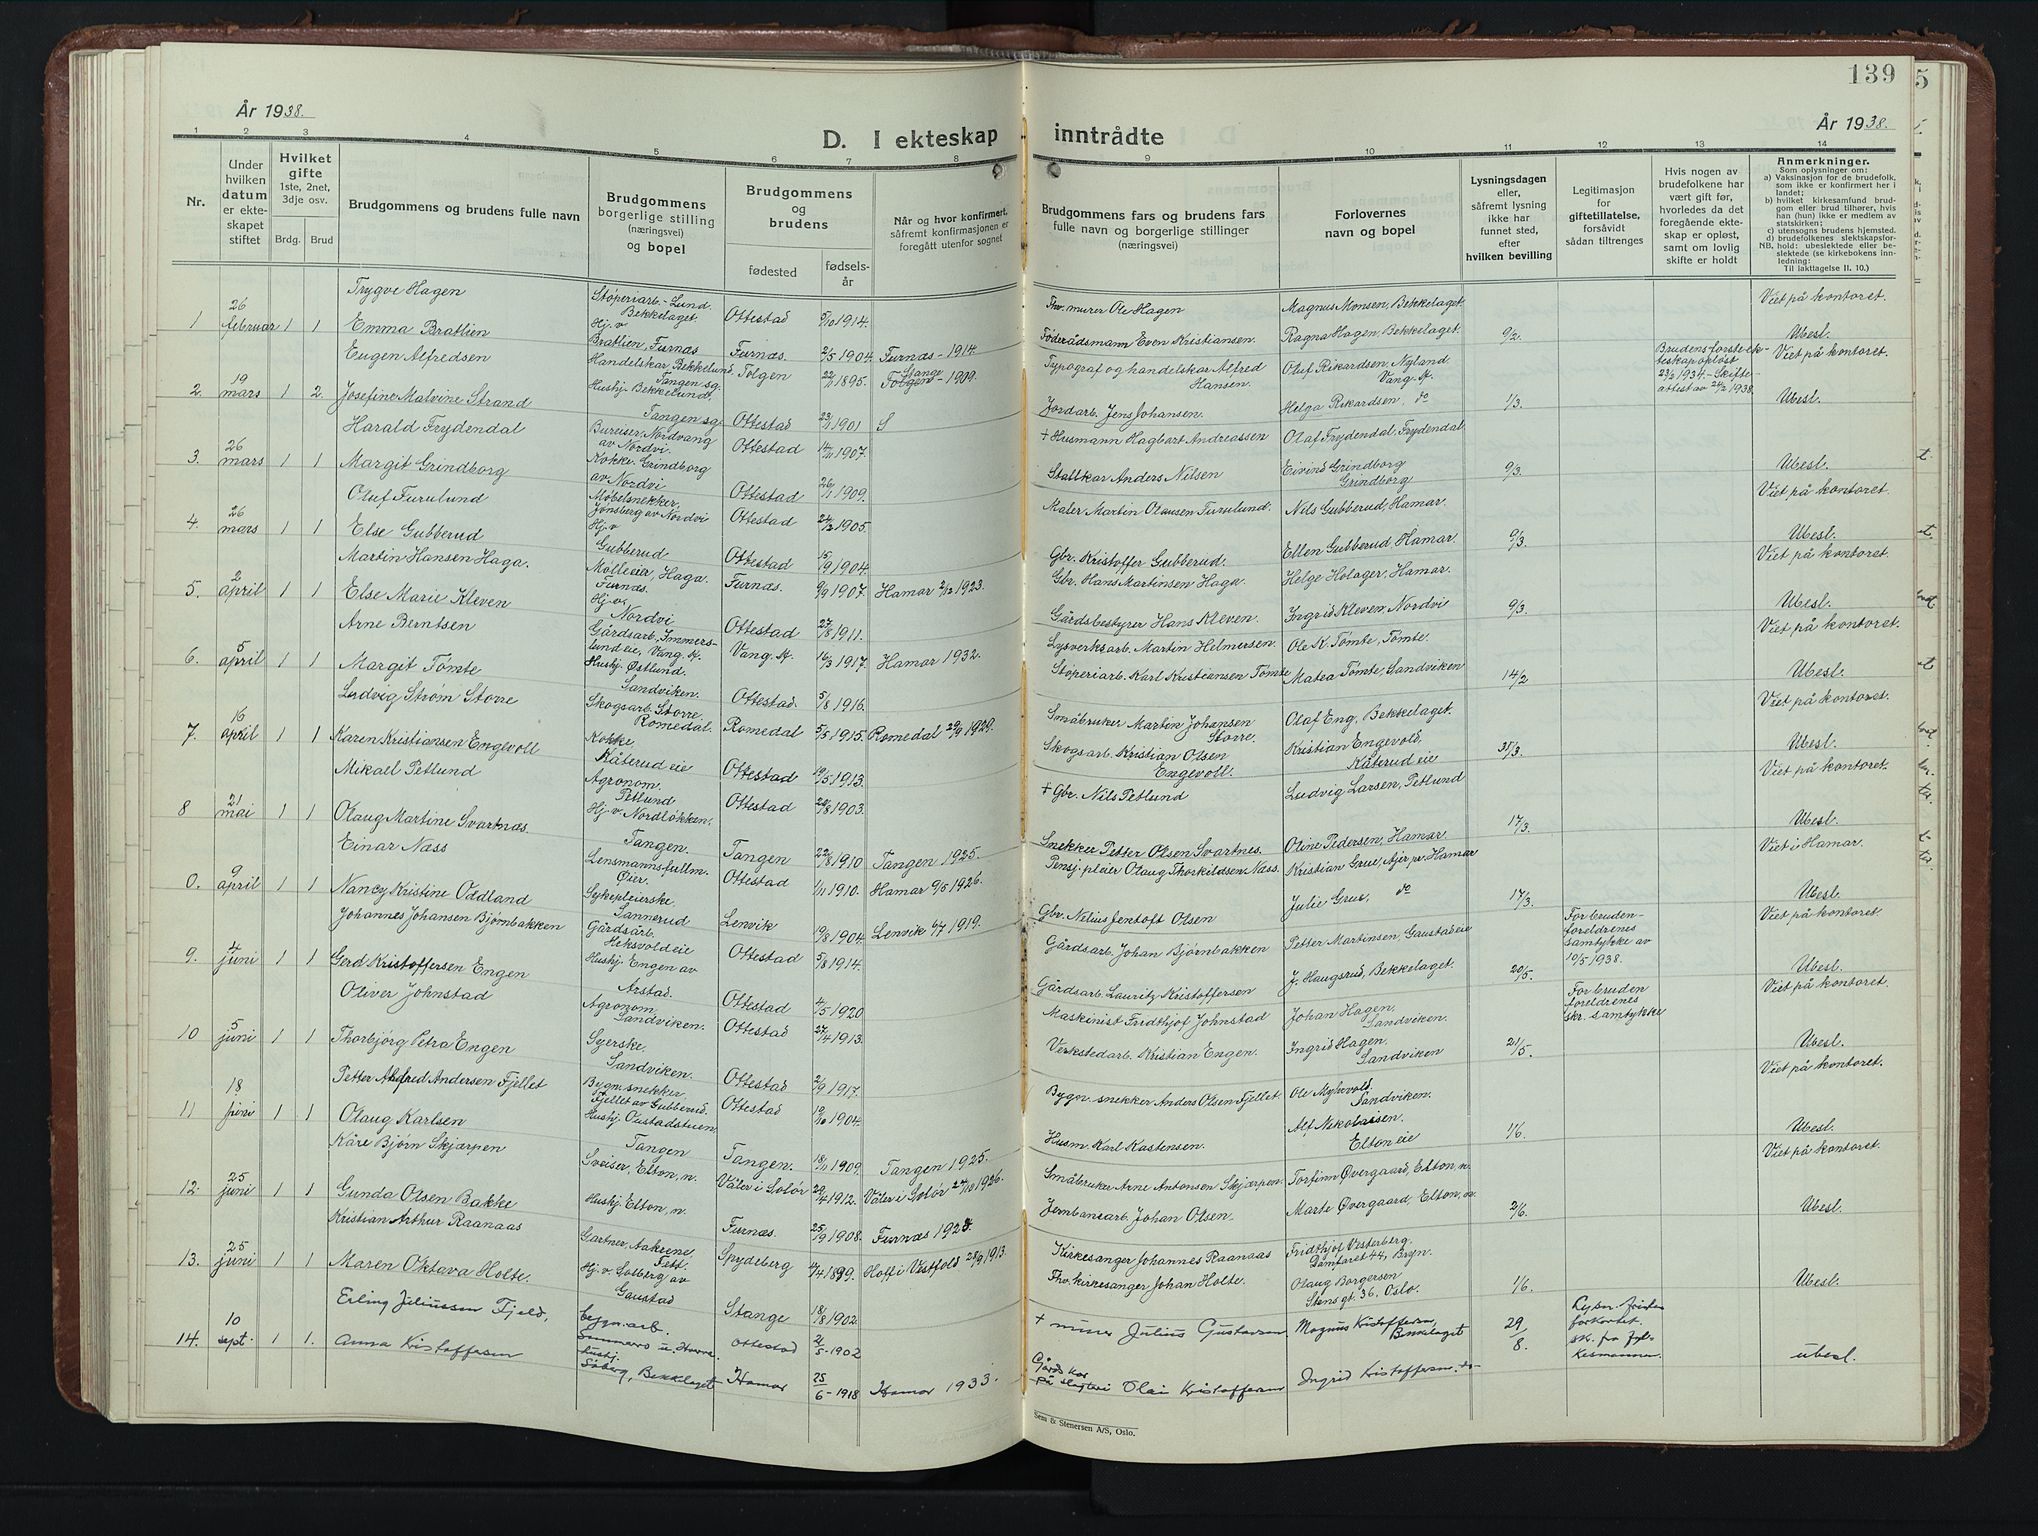 139
År 1938.
År 1938.
D. I ekteskap inntrådte
1 2 3 4 5 6 7 8 9 10 11 12 13 14
Nr.
Under hvilken datum er ekteskapet stiftet
Hvilket gifte 1ste, 2net, 3dje osv.
Brdg. Brud
Brudgommens og brudens fulle navn
Brudgommens borgerlige stilling (næringsvei) og bopel
Brudgommens og brudens
fødested
fødselsår
Når og hvor konfirmert, såfremt konfirmasjonen er foregått utenfor sognet
Brudgommens fars og brudens fars fulle navn og borgerlige stillinger (næringsvei)
Forlovernes navn og bopel
Lysningsdagen eller, såfremt lysning ikke har funnet sted, efter hvilken bevilling
Legitimasjon for giftetillatelse, forsåvidt sådan tiltrenges
Hvis nogen av brudefolkene har vært gift før, hvorledes da det foregående ekteskap er opløst, samt om lovlig skifte er holdt
Anmerkninger.
Som oplysninger om:
a) Vaksinasjon for de brudefolk, som ikke er konfirmert her i landet;
b) hvilket kirkesamfund brudgom eller brud tilhører, hvis han (hun) ikke er medlem av statskirken;
c) utensogns brudens hjemsted.
d) brudefolkenes slektskapsforhold: ubeslektede eller beslektede (se kirkebokens innledning:
NB. Til iakttagelse II. 10.)
Trygve Hagen Støperiarb. Lund Bekkelaget Ottestad 5/10 1914. Fhv. murer Ole Hagen Magnus Monsen, Bekkelaget Viet på kontoret.
1 26 februar 1 1 Emma Bratlien Hj. v. Bratlien, Furnæs Furnæs. 2/5 1904. Furnæs - 1914. Føderådsmann Even Kristiansen. Ragna Hagen, Bekkelaget. 9/2. Ubesl.
Eugen Alfredsen Handelskar, Bekkelund Tangen sg. Tolgen 22/7 1895. Tolgen Stange - 1909. Typograf og handelskar Alfred Hansen. Olaf Rikardsen, Nyland Vang. H. Brudens første ekteskap opløst 23/2 1934. - Skifteattest av 24/2 1938. Viet på kontoret
2. 19 mars 1 2. Josefine Malvine Strand Hushj. Bekkelund, Tangen sg. Ottestad 23/7 1901 S Jordarb. Jens Johansen. Helga Rikardsen, do 1/3. Ubesl.
Harald Frydendal Bureiser, Nordvang av Nordvi. Ottestad 14/11 1907. + Husmann Hagbart Andreassen Olaf Frydendal, Frydendal
3. 26 mars 1 1 Margit Grindborg Kokke. Grindborg av Nordvi Ottestad 26/7 1909. Stallkar Anders Nilsen Eivind Grindborg Grindborg 9/3. Ubesl.
Olaf Furulund Møbelsnekker, Jønsberg av Nordvi Ottestad 24/2 1905. Maler Martin Olausen Furulund. Nils Gubberud, Hamar. Viet på kontoret
4. 26 mars 1 1 Else Gubberud Hj. v Gubberud Ottestad 15/9 1904. Gbr. Kristoffer Gubberud. Ellen Gubberud Hamar 9/3. Ubesl.
Martin Hansen Haga. Mølleeier, Haga. Furnæs. Furnæs. 9/9 1907. Hamar 2/12 1923. Gbr. Hans Martinsen Haga. Helge Holager, Hamar. Viet på kontoret.
5. 2 april 1 1 Else Marie Kleven Hj. v. Nordvi Ottestad 27/8 1911. Gårdsbestyrer Hans Kleven. Ingrid Kleven, Nordvi 9/3. Ubesl.
Arne Berntsen Gårdsarb., Immerslundeie, Vang. H. Vang. H. 16/3 1917. Hamar 1932. Lysverksarb. Martin Helmersen. Ole K. Tømte, Tømte. Viet på kontoret.
6. 5 april 1 1 Margit Tømte Hushj. Østlund. Sandviken. Ottestad. 5/8 1916. Støperiarb. Karl Kristiansen Tømte Matea Tømte, Sandviken 14/2 Ubesl.
Ludvig Strøm Storre Skogsarb. Storre, Romedal. Romedal 5/5 1915. Romedal 29/9 1929. Småbruker Martin Johansen Storre. Olaf Eng, Bekkelaget. Viet på kontoret.
7. 16 april 1 1 Karen Kristiansen Engevoll Kokke, Kåterud eie Ottestad 19/5 1913. Skogsarb. Kristian Olsen Engevoll. Kristian Engevold, Kåterud eie 31/3. Ubesl.
Mikael Petlund Agronom. Petlund Ottestad 22/8 1903. + Gbr. Nils Petlund Ludvig Larsen, Petlund Viet på kontoret.
8 21 mai 1 1 Olaug Martine Svartnæs. Hj. v. Nordløkken. Tangen. Tangen 22/8 1910 Tangen 1925. Snekker Petter Olsen Svartnes. Oline Pedersen, Hamar. 17/3. Ubesl.
Einar Næss Lensmannsfullm. Øier. Ottestad 1/11 1910. Hamar 9/5 1926. Pensj. pleier Olaug Thorkildsen Næss. Kristian Grue, Ajer, pr. Hamar Viet i Hamar.
0. 9 april 1 1 Nancy Kristine Oddland Sykepleierske, Sannerud Lenvik 19/8 1904. Lenvik 6/7 1919. Gbr. Nelius Jentoft Olsen Julie Grue, do 17/3. Ubesl.
Johannes Johansen Bjørnbakken Gårdsarb. Heksvoldeie Ottestad 5/8 1914. Gårdsarb. Johan Bjørnbakken Petter Martinsen, Gaustadeie For bruden - foreldrenes samtykke av 10/5 1938. Viet på kontoret
9. 4 juni 1 1 Gerd Kristoffersen Engen Hushj. Engen av Arstad. Ottestad 4/5 1920 Gårdsarb. Lauritz Kristoffersen J. Haugsrud, Bekkelaget. 20/5. Ubesl.
Oliver Johnstad Agronom, Sandviken. Ottestad 27/4 1913. Maskinist Fridthjof Johnstad Johan Hagen, Sandviken. For bruden foreldrenes skr. samtykke Viet på kontoret.
10 5 juni 1 1 Thorbjørg Petra Engen Syerske Sandviken. Ottestad 2/9 1917. Verkstedarb. Kristian Engen. Ingrid Hagen, Sandviken 21/5. Ubesl.
Petter Alfred Andersen Fjellet Bygn. snekker, Fjellet av Gubberud. Ottestad 19/10 1904. Bygn. snekker Anders Olsen Fjellet. Ole Myhvold, Sandviken. Viet på kontoret.
11 18 juni 1 1 Olaug Karlsen Hushj. Oustadstuen Tangen Tangen. 18/11 1909. Tangen 1925. Husm Karl Kastensen. Alf Nikolaisen. Elton eie 1/6. Ubesl.
Kåre Bjørn Skjærpen Sveiser, Elton, n. Våler i Solør 29/4 1912. Våler i Solør 24/10 1926. Småbruker Arne Antonsen Skjærpen. Torfinn Øvergaard, Elton, n. Viet på kontoret.
12. 25 juni 1 1 Gunda Olsen Bakke Hushj. Elton, n. Furnæs. 25/9 1908. Furnæs 1923. Jernbanearb. Johan Olsen. Marte Øvergaard, Elton, n. 2/6. Ubesl.
Kristian Arthur Raanaas Gartner, Aakrene, Fett. Spydeberg 4/4 1899. Hoff i Vestfold 28/9 1913. Kirkesanger Johannes Raanaas Fridthjof Vesterberg. Damfaret 44, Bryn.
13. 25 juni 1 1 Maren Oktava Holte. Hj. v. Solberg av Gaustad Stange 18/8 1902 Fhv. kirkesanger Johan Holte. Olaug Borgersen Stensgt. 36, Oslo. 1/6. Ubesl.
Erling Juliussen Fjeld, bygn. arb. Ottestad 2/5 - 1902 + murer Julius Gustavsen Magnus Kristoffersen, Bekkelaget 29/8. Lysn. fristen forkortet. sk. fra fylkesmannen.
14. 10 sept. 1 1. Anna Kristoffersen hushj. Søberg, Bekkelaget Hamar 25/6 - 1918 Hamar 1933. Gårdskar på slagteri Olai Kristoffersen Ingrid Kristoffersen. do ubesl.
Sem & Stenersen A/S, Oslo.